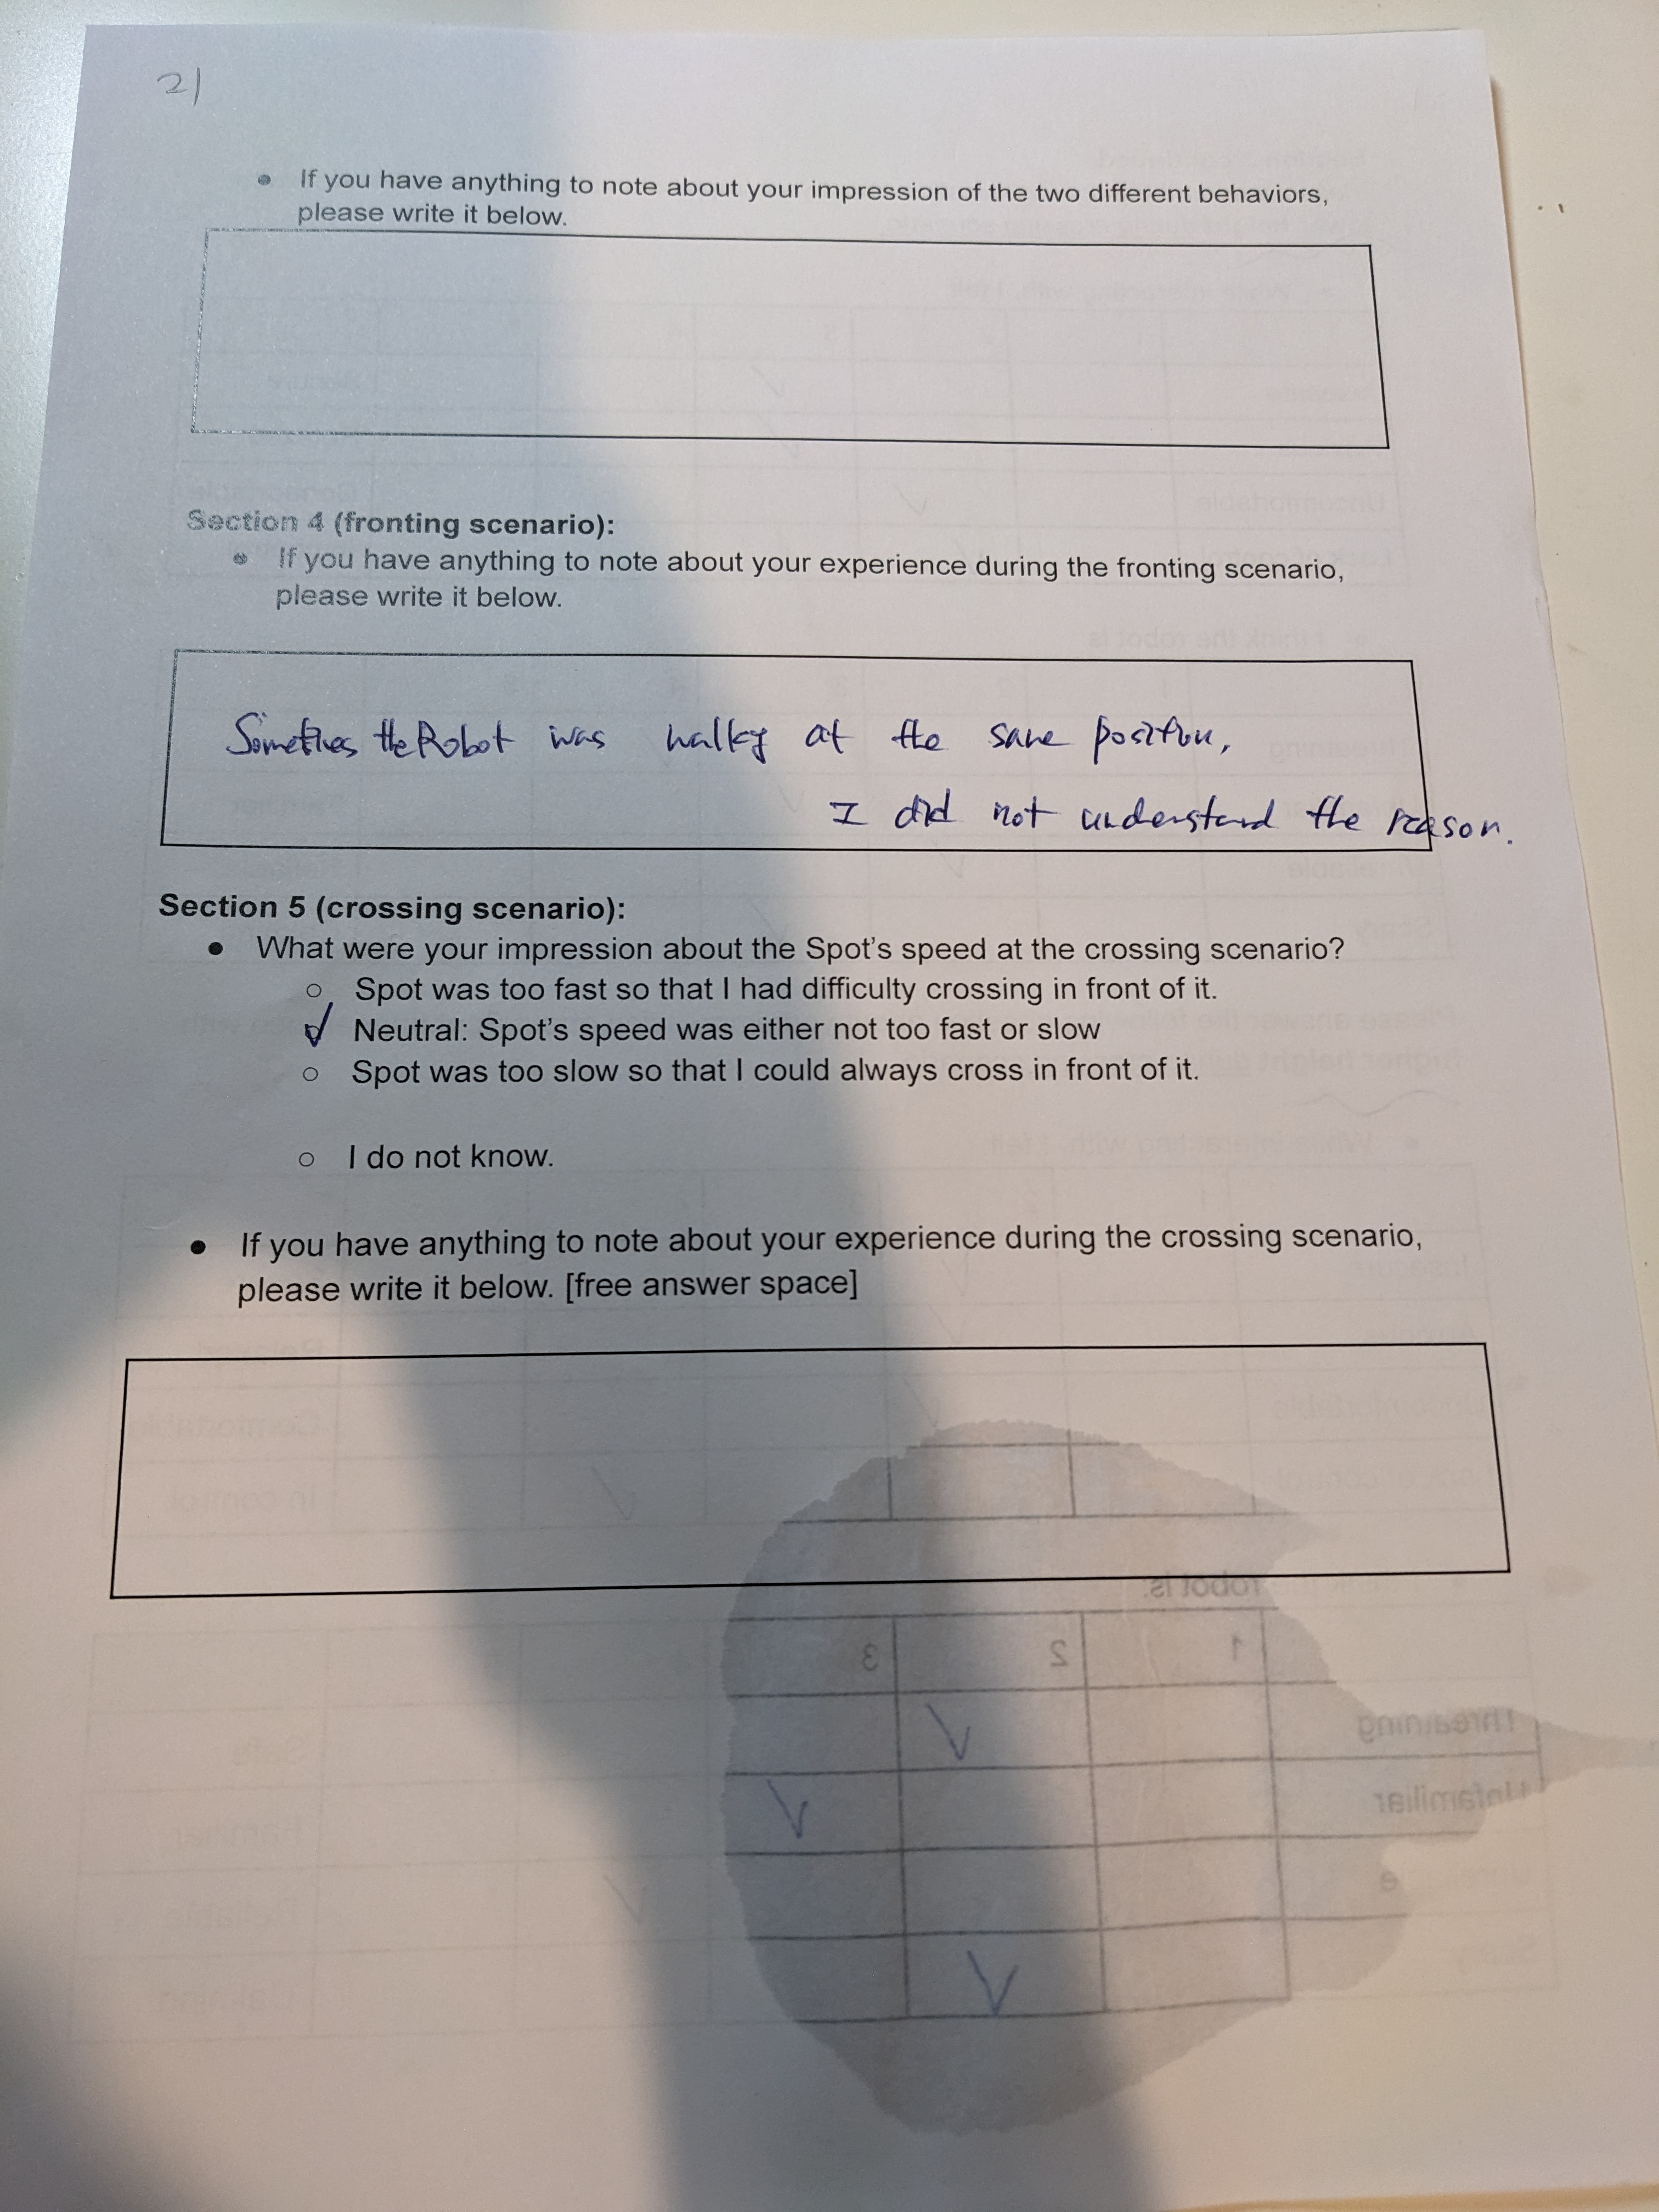 21
• If you have anything to note about your impression of the two different behaviors,
please write it below.
Section 4 (fronting scenario):
• If you have anything to note about your experience during the fronting scenario,
please write it below.
Sometimes the Robot was walking at the same position,
I did not understand the reason.
Section 5 (crossing scenario):
• What were your impression about the Spot's speed at the crossing scenario?
○ Spot was too fast so that I had difficulty crossing in front of it.
○ Neutral: Spot's speed was either not too fast or slow
○ Spot was too slow so that I could always cross in front of it.
○ I do not know.
• If you have anything to note about your experience during the crossing scenario,
please write it below. [free answer space]
robot is:
1 2 3
Threatning
Unfamiliar